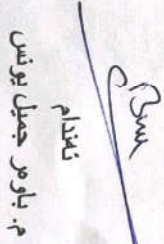 ئەندام
م. ياوەر جميل يونس